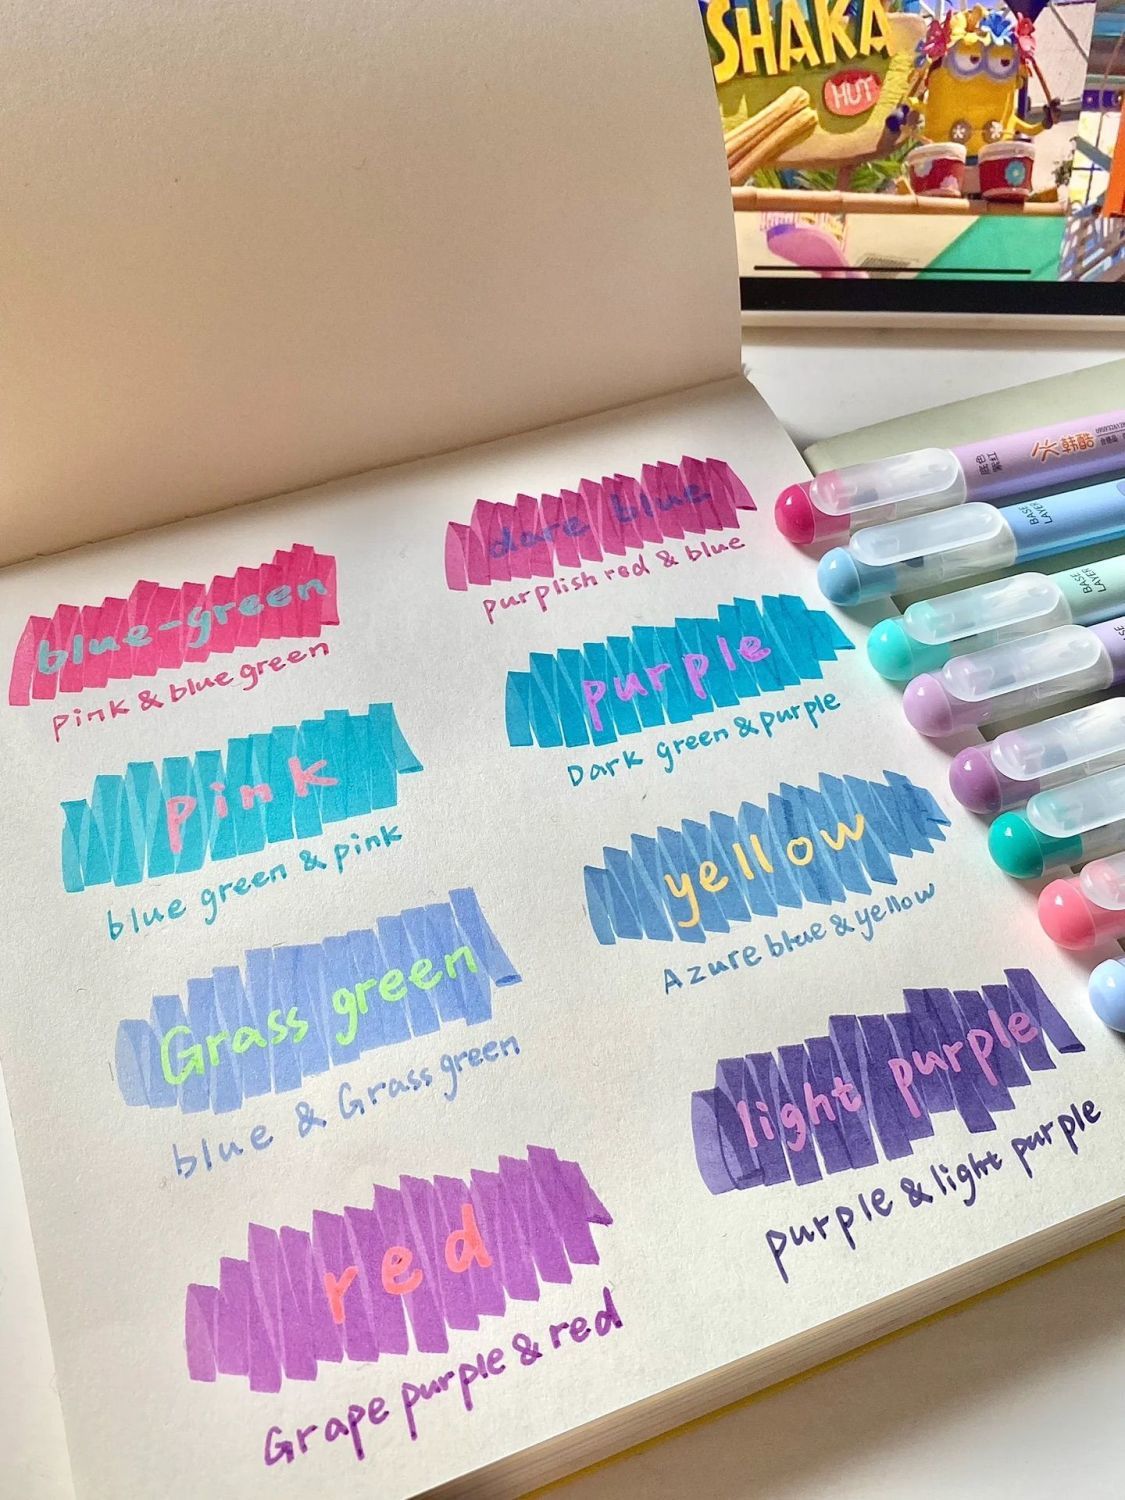 SHAKA
HUT
blue-green
pink & blue green
dare blue
purplish red & blue
pink
blue green & pink
purple
Dark green & purple
Grass green
blue & Grass green
yellow
Azure blue & yellow
red
Grape purple & red
light purple
purple & light purple
底色
紫红
韩酷
BASE
LAYER
BASE
LAYER
BASE